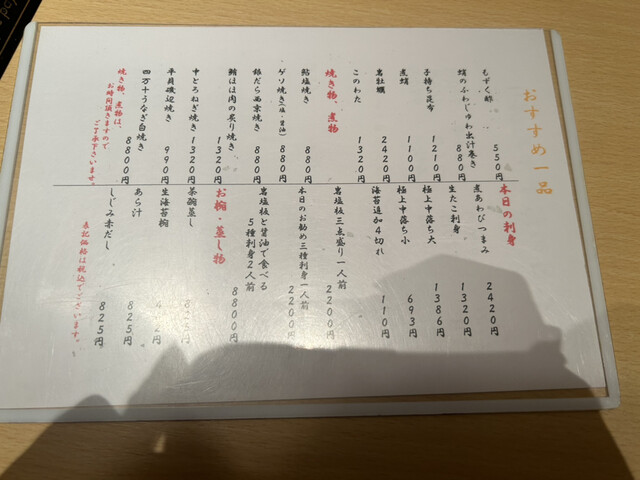 おすすめ一品
もずく酢 550円
蛸のふわじゅわ出汁巻き 880円
子持ち昆布 1210円
煮蛸 1100円
岩牡蠣 2420円
このわた 1320円
焼き物、煮物
鮎塩焼き 880円
ゲソ焼き(塩・醤油) 880円
銀だら西京焼き 880円
鮪ほほ肉の炙り焼き 1320円
中とろねぎ焼き 1320円
平貝磯辺焼き 990円
四万十うなぎ白焼き 8800円
焼き物、煮物は、
お時間頂きますので
ご了承下さいませ。
本日の刺身
煮あわびつまみ 2420円
生たこ刺身 1320円
極上中落ち大 1386円
極上中落ち小 693円
海苔追加4切れ 110円
岩塩板三点盛り一人前 2200円
本日のお勧め三種刺身一人前 2200円
岩塩板と醤油で食べる
5種刺身2人前 8800円
お椀・蒸し物
茶碗蒸し
生海苔椀
あら汁 825円
しじみ赤だし 825円
表記価格は税込でございます。